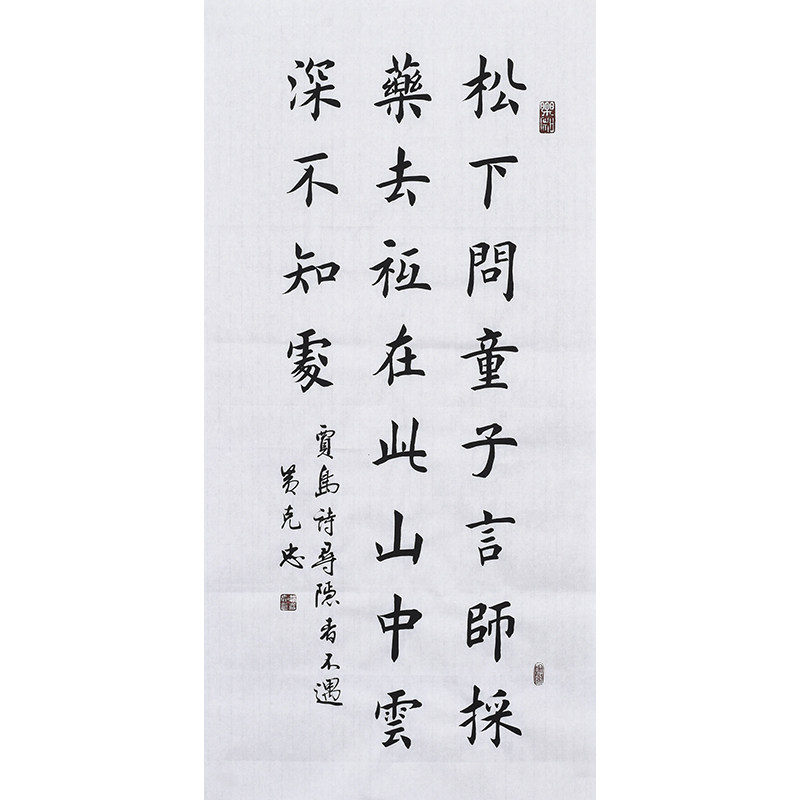 松下問童子言師採
藥去祗在此山中雲
深不知處
賈島詩尋隱者不遇
黃克忠